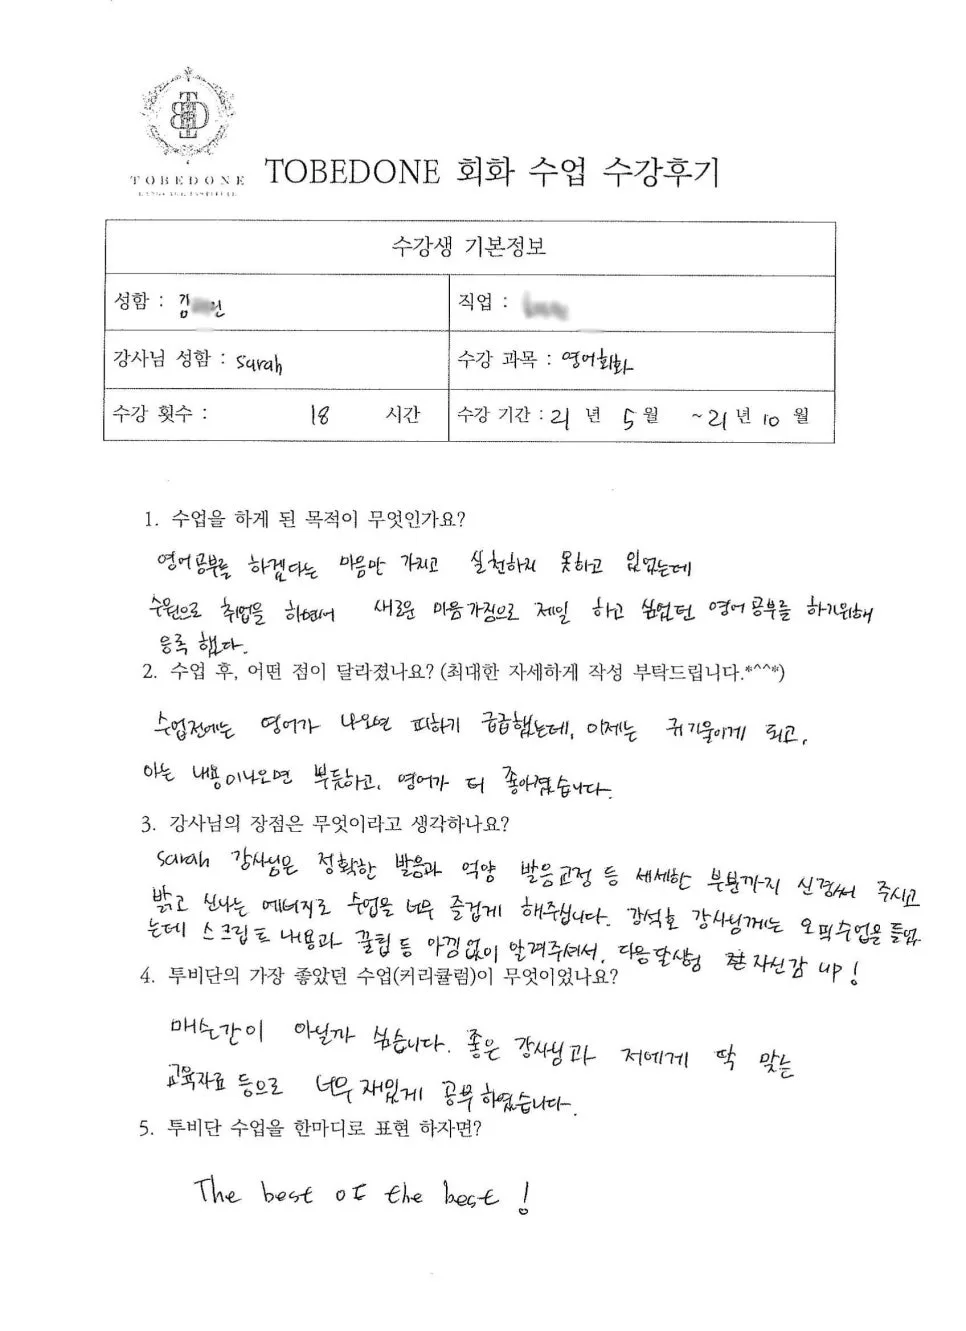 TOBEDONE
LANGUAGE INSTITUTE
TOBEDONE 회화 수업 수강후기
수강생 기본정보
성함 : 김 인
직업 :
강사님 성함 : Sarah
수강 과목 : 영어회화
수강 횟수 : 18 시간
수강 기간 : 21 년 5 월 ~ 21 년 10 월
1. 수업을 하게 된 목적이 무엇인가요?
영어공부를 하겠다는 마음만 가지고 실천하지 못하고 있었는데
수원으로 취업을 하면서 새로운 마음가짐으로 제일 하고 싶었던 영어공부를 하기위해
등록했다.
2. 수업 후, 어떤 점이 달라졌나요? (최대한 자세하게 작성 부탁드립니다.*^^*)
수업전에는 영어가 나오면 피하기 급급했는데, 이제는 귀기울이게 되고,
아는 내용이나오면 뿌듯하고, 영어가 더 좋아졌습니다.
3. 강사님의 장점은 무엇이라고 생각하나요?
Sarah 강사님은 정확한 발음과 억양 발음교정 등 세세한 부분까지 신경써 주시고
밝고 신나는 에너지로 수업을 너무 즐겁게 해주십니다. 강석호 강사님께는 오픽수업을 들었
는데 스크립트 내용과 꿀팁 등 아낌없이 알려주셔서, 다음달생성 자신감 up!
4. 투비단의 가장 좋았던 수업(커리큘럼)이 무엇이었나요?
매순간이 아닐까 싶습니다. 좋은 강사님과 저에게 딱 맞는
교육자료 등으로 너무 재밌게 공부하였습니다.
5. 투비단 수업을 한마디로 표현 하자면?
The best of the best!